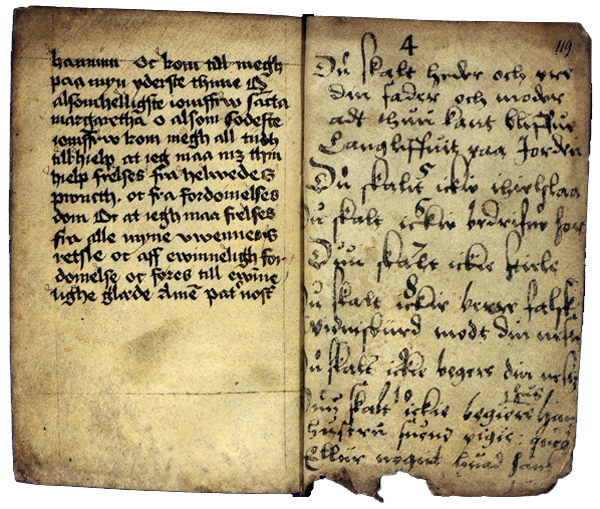 hannum Oc kom till megh
paa myn yderste thime O
alsomhelligste iomffrw sancta
margaretha o alsom sødeste
iomffrw kom megh all tiidh
till hielp at ieg maa mz thin
hielp frelses fra helwedes
pwncth. oc fra fordømelses
dom Oc at iegh maa frelses
fra alle myne vwenners
retsle oc aff ewinneligh for
dømelse oc føres till ewine
lighe glæde Amē pat nost
119
4
Du skalt heder och ere
din fader och moder
adt thuu kant bliffue
Langliffuit paa Jorden
5
Du skalt ickie ihielslaa
6
Du skalt ickie bedrifue hor
7
Duu skalt ickie stiele
8
Du skalt ickie berre falsk
vidnisbürd modt din neste
Du skalt ickie begere din nestis
hus
10
Duu skalt ickie begiere hans
hustru suend pigie
Eller noget huad hans